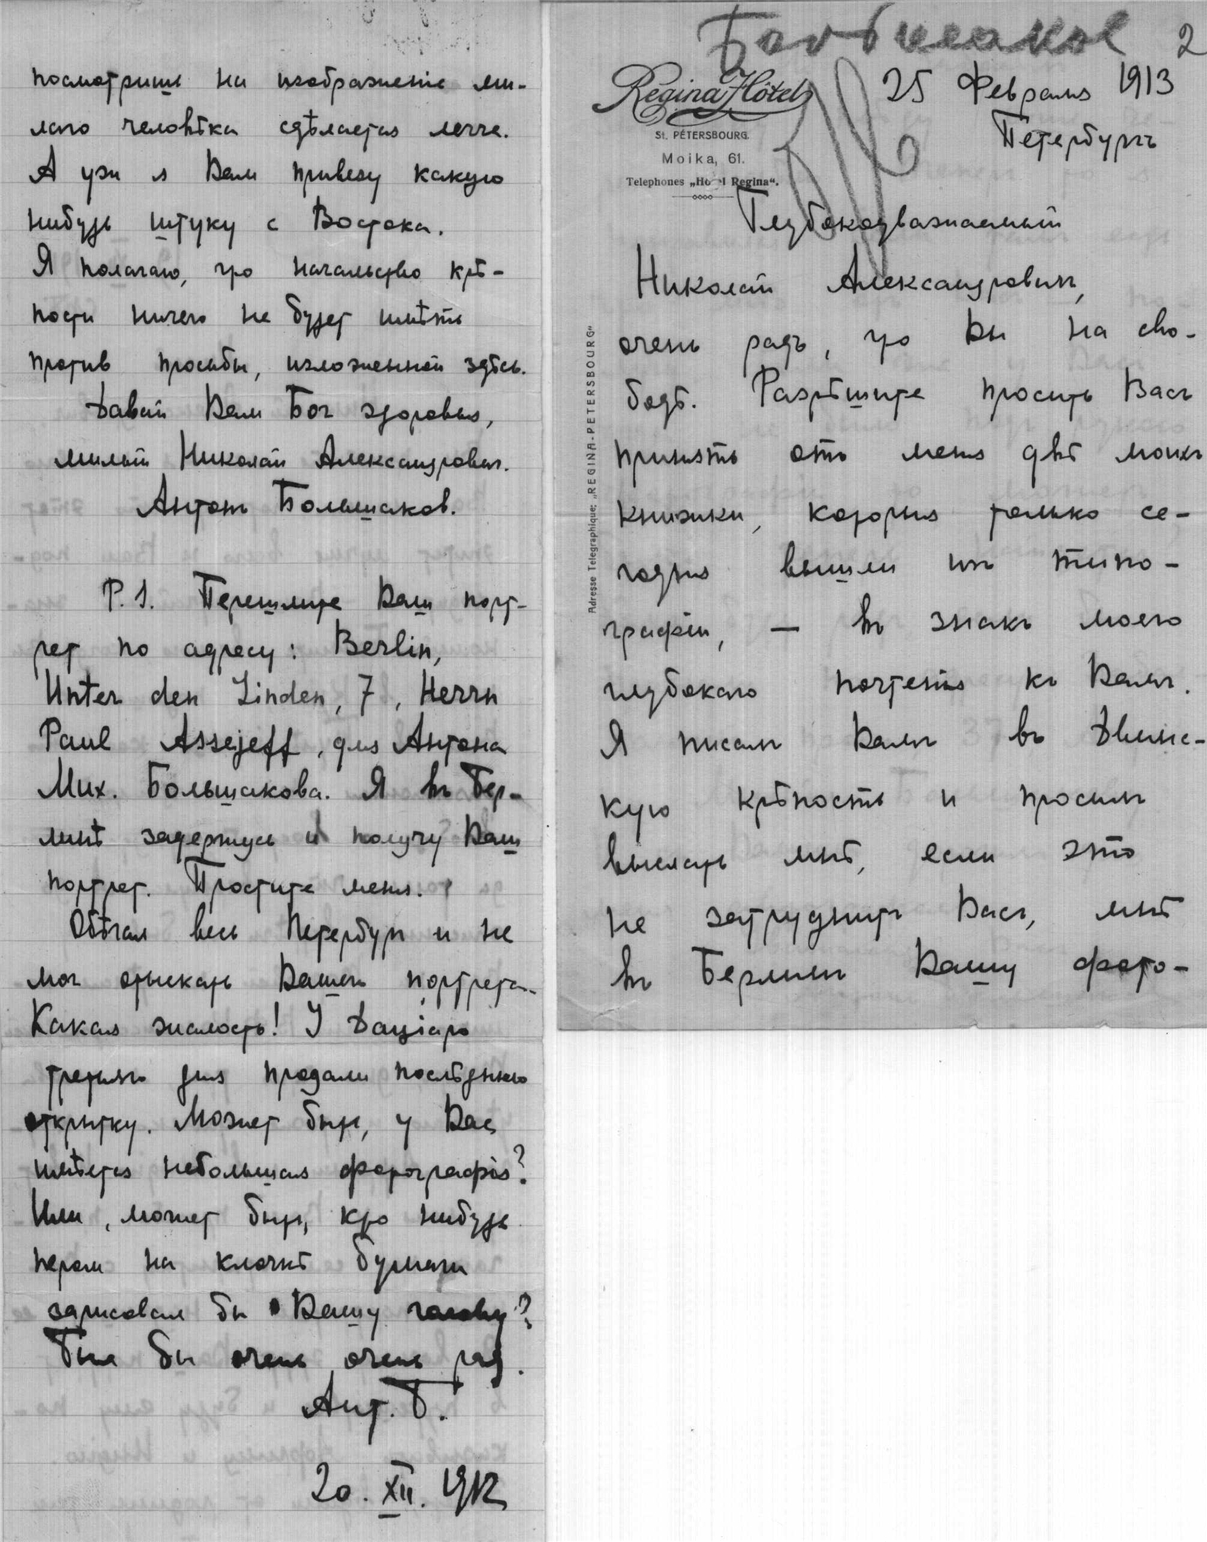 посмотришь на изображенiе ми-
лаго человѣка сдѣлается легче.
А ужъ я Вам привезу какую
нибудь штуку с Востока.
Я полагаю, что начальство крѣ-
пости ничего не будет имѣть
против просьбы, изложенной здѣсь.
Давай Вам Бог здоровья,
милый Николай Александрович.
Антонъ Большаков.
P.S. Перешлите Ваш порт-
рет по адресу: Berlin,
Unter den Linden, 7, Herrn
Paul Assejeff, для Антона
Мих. Большакова. Я въ Бер-
линѣ задержусь и получу Ваш
портрет. Простите меня.
Обѣгал весь Петербург и не
мог отыскать Вашего портрета.
Какая жалость! У Дацiаро
третьяго дня продали послѣднюю
открытку. Может быть, у Вас
имѣется небольшая фотографiя?
Или, может быть, кто нибудь
пером на клочкѣ бумаги
зарисовал бы Вашу голову?
Был бы очень, очень рад.
Ант. Б.
20. XII. 1912
Большаков 2
Regina Hôtel
St. PÉTERSBOURG.
Moika, 61.
Telephones „Hotel Regina“.
Adresse Telegraphique: „REGINA-PETERSBOURG“
25 Февраля 1913
Петербургъ
Глубокоуважаемый
Николай Александровичъ,
очень радъ, что Вы на сво-
бодѣ. Разрѣшите просить Васъ
принять отъ меня двѣ моихъ
книжки, которыя только се-
годня вышли изъ типо-
графiи, — въ знакъ моего
глубокаго почтенiя къ Вамъ.
Я писалъ Вамъ въ Двинс-
кую крѣпость и просилъ
выслать мнѣ, если это
не затруднитъ Васъ, мнѣ
въ Берлинъ Вашу фото-